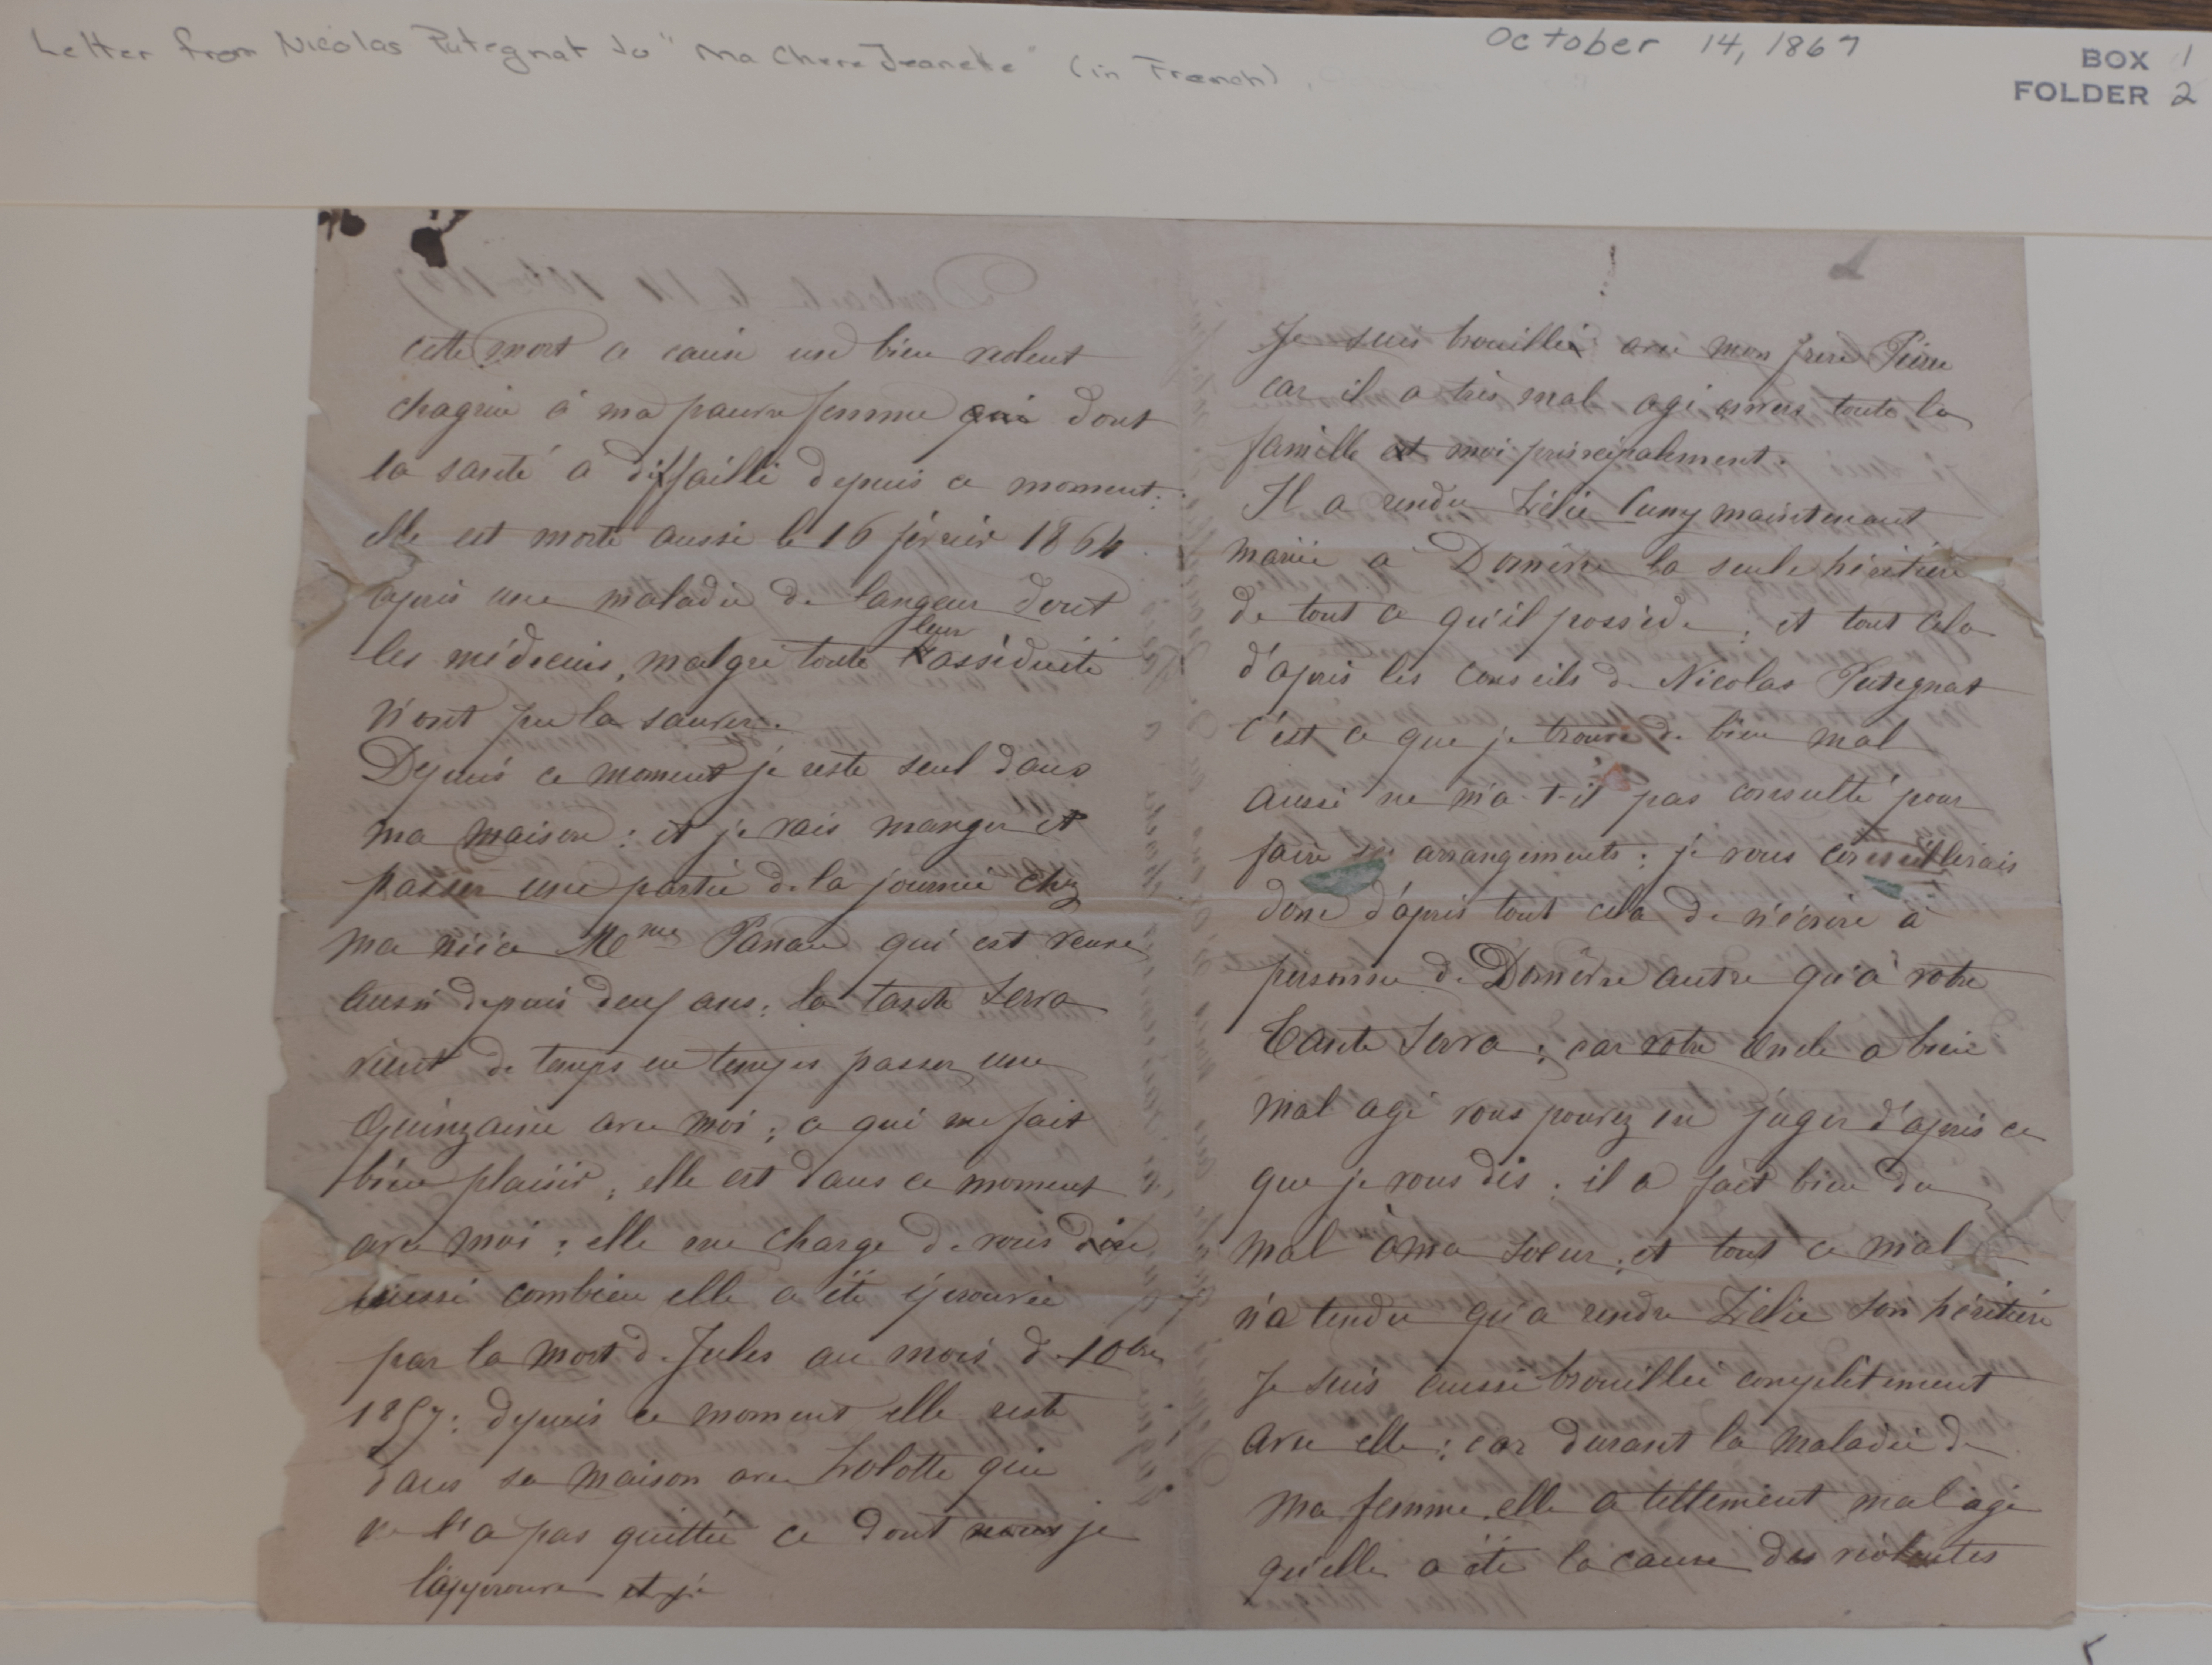 Letter from Nicolas Putegnat to "Ma Chere Jeanette" (in French)
October 14, 1867
BOX 1
FOLDER 2
cette mort a causé un bien violent
chagrin à ma pauvre femme qui dont
la santé a diffailli depuis ce moment:
elle est morte aussi le 16 février 1864
après une maladie de langeur dont
les médecins, malgré toute leur assiduité
n'ont pu la sauver.
Depuis ce moment je reste seul dans
ma maison: et je vais manger et
passer une partie de la journée chez
ma nièce Mme Panau qui est veuve
aussi depuis deux ans: la tante Serva
vient de temps en temps passer une
quinzaine avec moi; ce qui me fait
bien plaisir; elle est dans ce moment
avec moi: elle me charge de vous dire
aussi combien elle a été éprouvée
par la mort de Jules au mois de 10bre
1857: depuis ce moment elle reste
dans sa maison avec Lolotte qui
ne l'a pas quittée ce dont nous je
l'approuve et je
Je suis brouillé avec mon frère Pierre
car il a très mal agi envers toute la
famille et moi principalement.
Il a rendu Zélie Cuny maintenant
mariée à Domèvre la seule héritière
de tout ce qu'il possède; et tout cela
d'après les conseils de Nicolas Putegnat
c'est ce que je trouve de bien mal
aussi ne m'a-t-il pas consulté pour
faire ses arrangements: je vous conseillerais
donc d'après tout cela de n'écrire à
personne de Domèvre autre qu'à votre
Tante Serva; car votre Oncle a bien
mal agi vous pouvez en juger d'après ce
que je vous dis: il a fait bien du
mal à ma soeur; et tout ce mal
n'a tendu qu'a rendre Zélie son héritière
Je suis aussi brouillée complètement
avec elle: car durant la maladie de
ma femme elle a tellement mal agi
qu'elle a été la cause des violentes